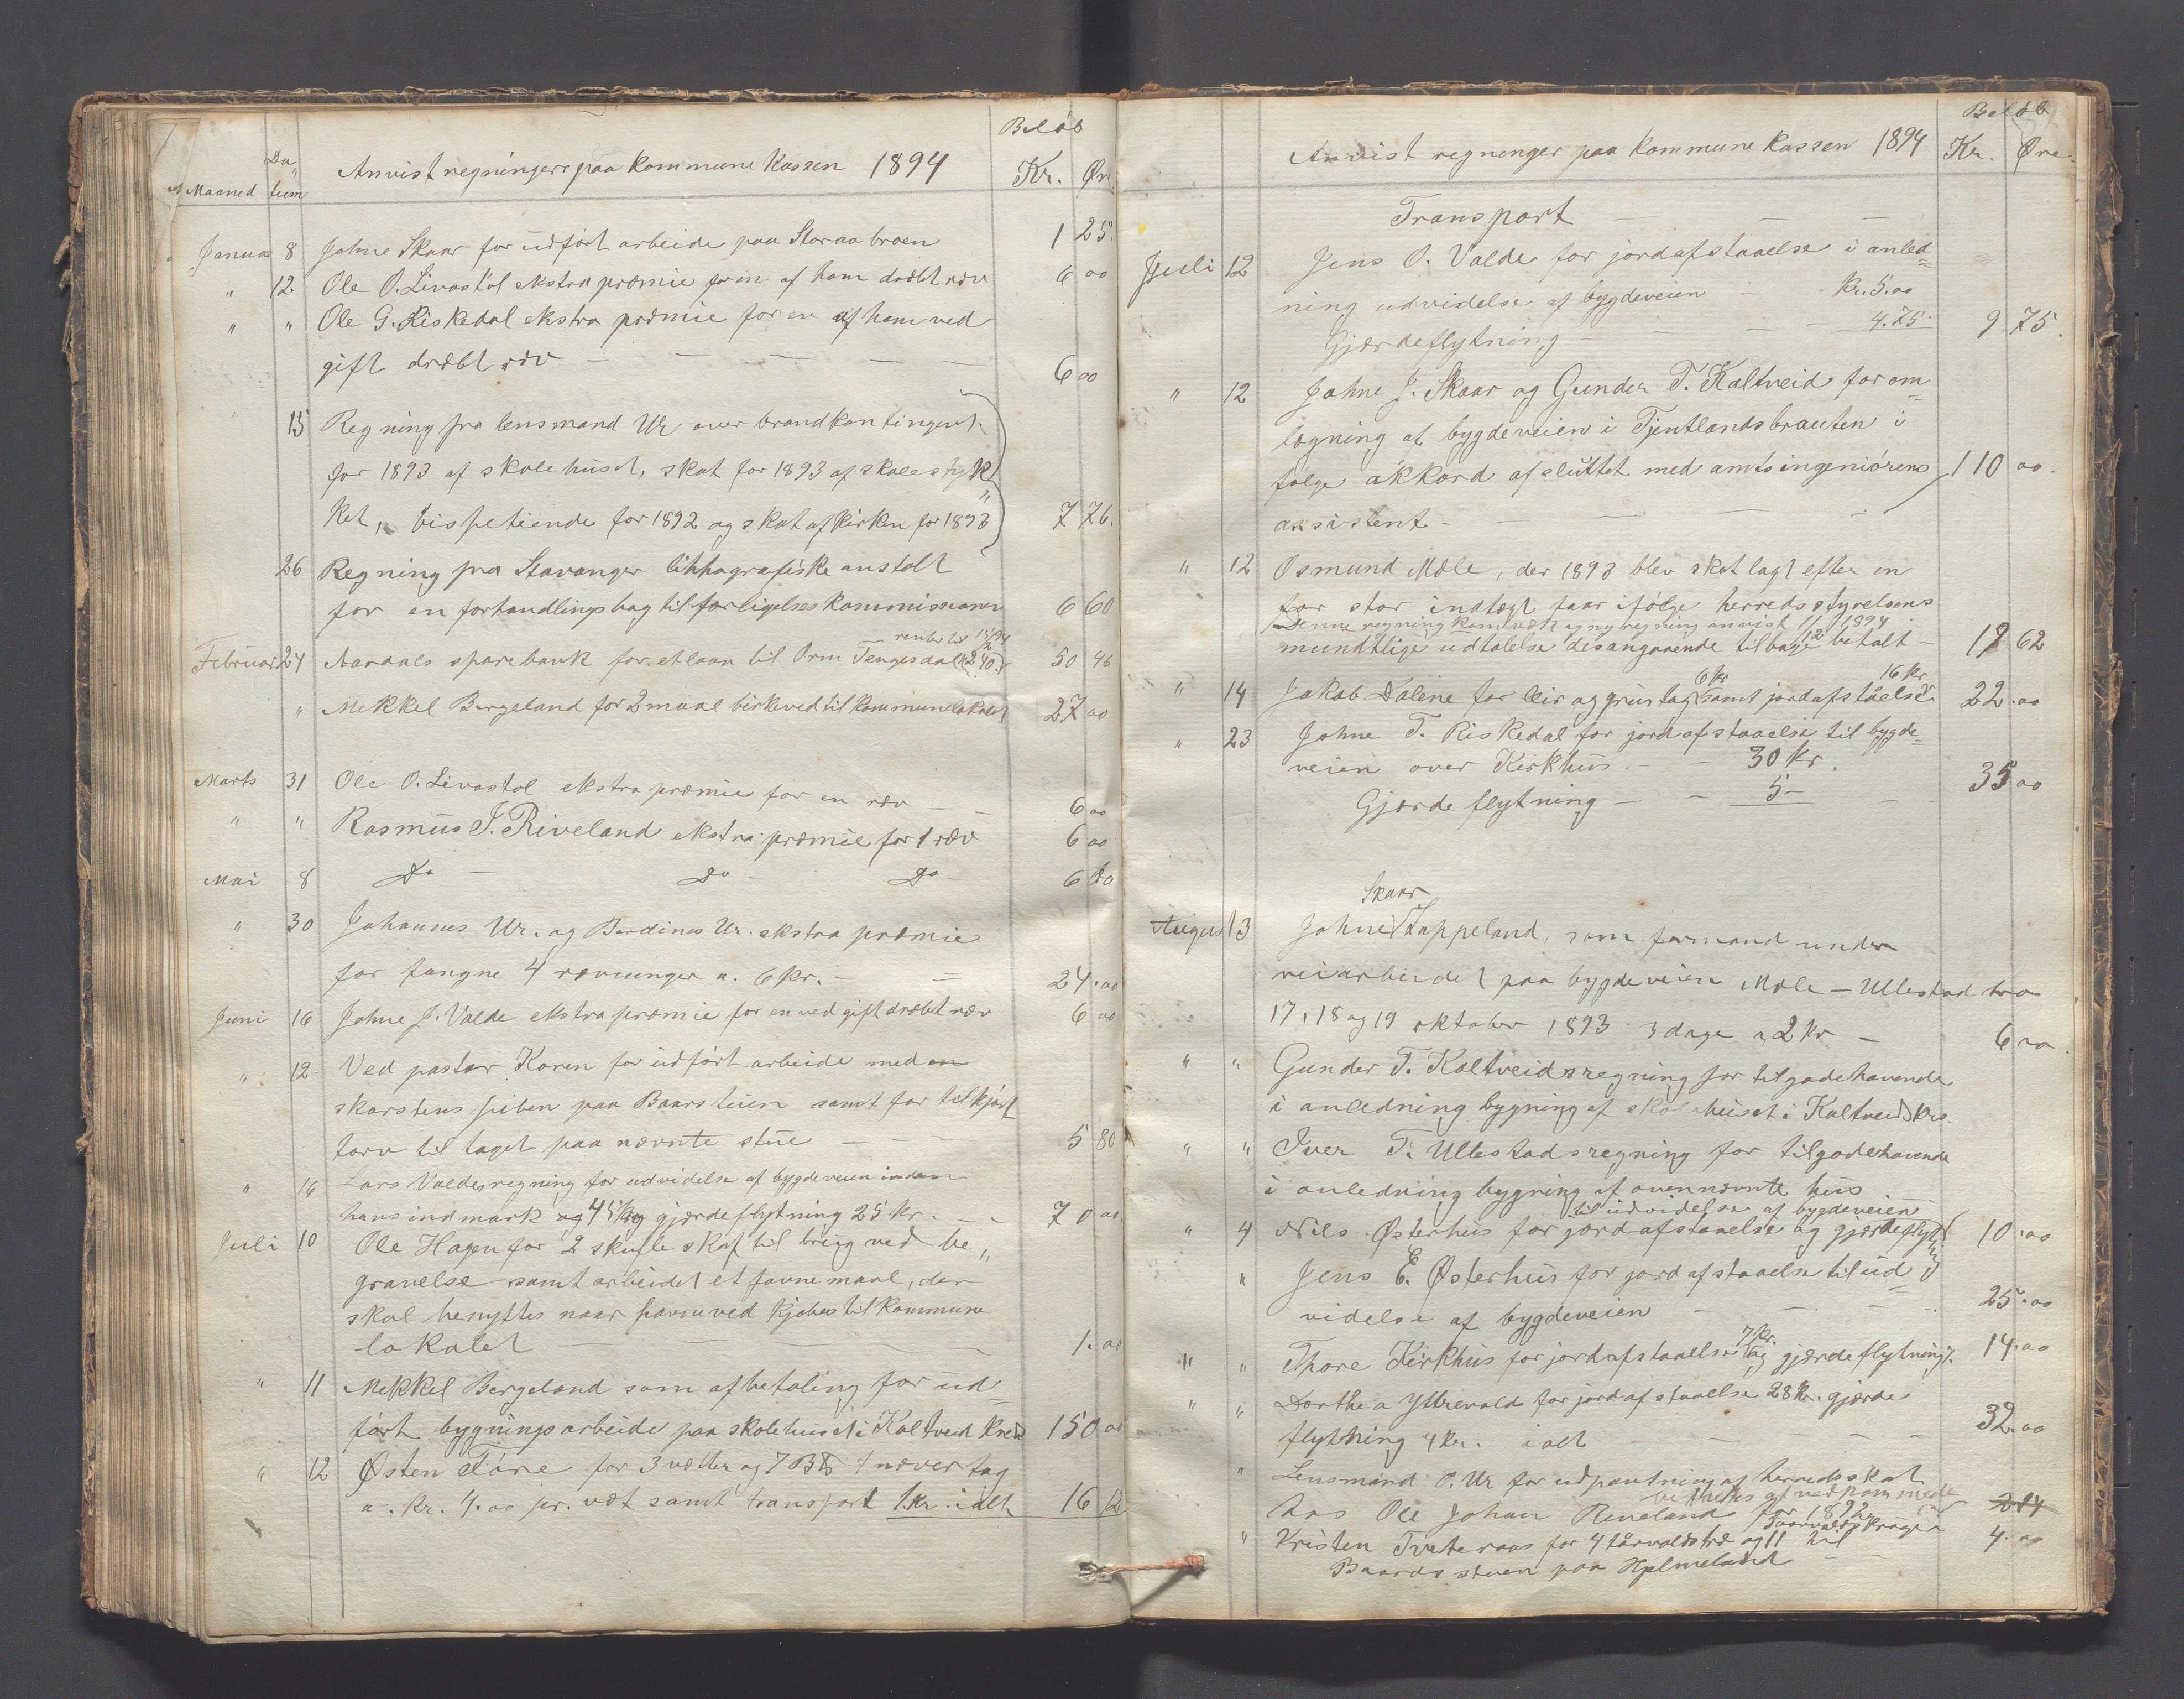 Beløb
Maaned Da„tum Anvist regninger paa kommune kassen 1894 Kr. Øre
Januar 8 Johne Skaar for udført arbeide paa Storaabroen 1 25.
" 12. Ole O. Livastøl ekstra præmie for en af ham dræbt ræv 6 00
" " Ole G. Riskedal ekstra præmie for en af ham ved
gift dræbt ræv — — — — 6 00
15 Regning fra lensmand Ur over brandkontingent
for 1893 af skolehuset, skat for 1893 af skolestyk„
ket, bispetiende for 1892 og skat af kirken for 1893 7 76.
26 Regning fra Stavanger lithografiske anstalt
for en forhandlingsbog til forligelseskommissionen 6 60
renter til 15/2 94
Februar 24 Aardals sparebank for et laan til Orm Tengesdal 50 46
" Mekkel Bergeland for 2 maal birkeved til kommunelokalet 27 00
Marts 31 Ole O. Livastøl ekstra præmie for en ræv — — 6 00
" " Rasmus T. Riveland ekstra præmie for 1 ræv 6 00
Mai 8 Do — Do — Do — 6 00
" 30 Johannes Ur. og Berdines Ur. ekstra præmie
for fangne 4 rævunger a. 6 kr. — = 24.00
Juni 16 Johne J. Valde ekstra præmie for en ved gift dræbt ræv 6 00
" 12 Ved pastor Koren for udført arbeide med en
skorstens piben paa Baarstuen samt for tilkjørt
torv til taget paa nævnte stue — — — 5 80
" 16 Lars Valdes regning for udvidelse af bygdeveien inden
hans indmark og 45 kr og gjærdeflytning 25 kr. — — 70 00
Juli 10 Ole Hagen for 2 skufle skaf til brug ved be„
gravelse samt arbeidet et favnemaal, der
skal benyttes naar favneved kjøbes til kommune
lokalet — — — 1.00
" 11 Mekkel Bergeland som afbetaling for ud=
ført bygningsarbeide paa skolehuset i Kaltveid kreds 150 00
" 12 Østen Føre for 3 vætter og 7 næver tag
a. kr. 4.00 pr. væt samt transport 1 kr. ialt 16 12
Beløb
Anvist regninger paa kommune kassen 1894 Kr. Øre.
Transport — — —
Juli 12 Jens O. Valde for jordafstaaelse i anled=
ning udvidelse af bygdeveien — Kr. 5.00
Gjærdeflytning — — — 4.75. 9. 75.
" 12 Johne J. Skaar og Gunder T. Kaltveid for om=
lægning af bygdeveien i Tjentlandsbrauten i
følge akkord afsluttet med amtsingeniørens 110 00.
assistent — — — —
" 12 Osmund Mæle, der 1893 blev skatlagt efter en
for stor indtægt faar ifølge herredsstyrelsens
Denne regning kom væk og ny regning anvist 11/12 1894
mundtlige udtalelse desangaaende tilbage betalt — 12 62
6 kr 16 kr
" 14 Jakob Dalene for leir og grustag samt jordafståelse 22.00
" 23 Johne T. Riskedal for jordafstaaelse til bygde=
veien over Kirkhus — — 30 kr.
Gjærde flytning — — 5— — — 35 00
Skaar
August 3 Johne Tappeland, som formand under
veiarbeidet paa bygdeveien Mæle — Ullestad
17, 18 og 19 oktober 1893 3 dage a 2 kr — 6 00
" " Gunder T. Kaltveids regning for tilgodehavende
i anledning bygning af skolehuset i Kaltveid krs.
" " Iver T. Ullestads regning for tilgodehavende
i anledning bygning af ovennævnte hus
til udvidelse af bygdeveien
" 4 Nils Østerhus for jordafstaaelse og gjærdeflytning 10.00
" Jens E. Østerhus for jordafstaaelse til ud=
videlse af bygdeveien — — — — 25.00
7 kr.
" " Thore Kirkhus for jordafstaaelse og gjærdeflytning 14.00
" " Dorthea Yttrevold for jordafstaaelse 28 kr. gjærde
flytning 4 kr. ialt — — — — 32.00
" Lensmand O. Ur for udpantning af herredsskat
hos Ole Johan Riveland for 1892
" Kristen Tveteraas for 4 og 11 til 4.00
Baards stuen paa Hjelmeland — —